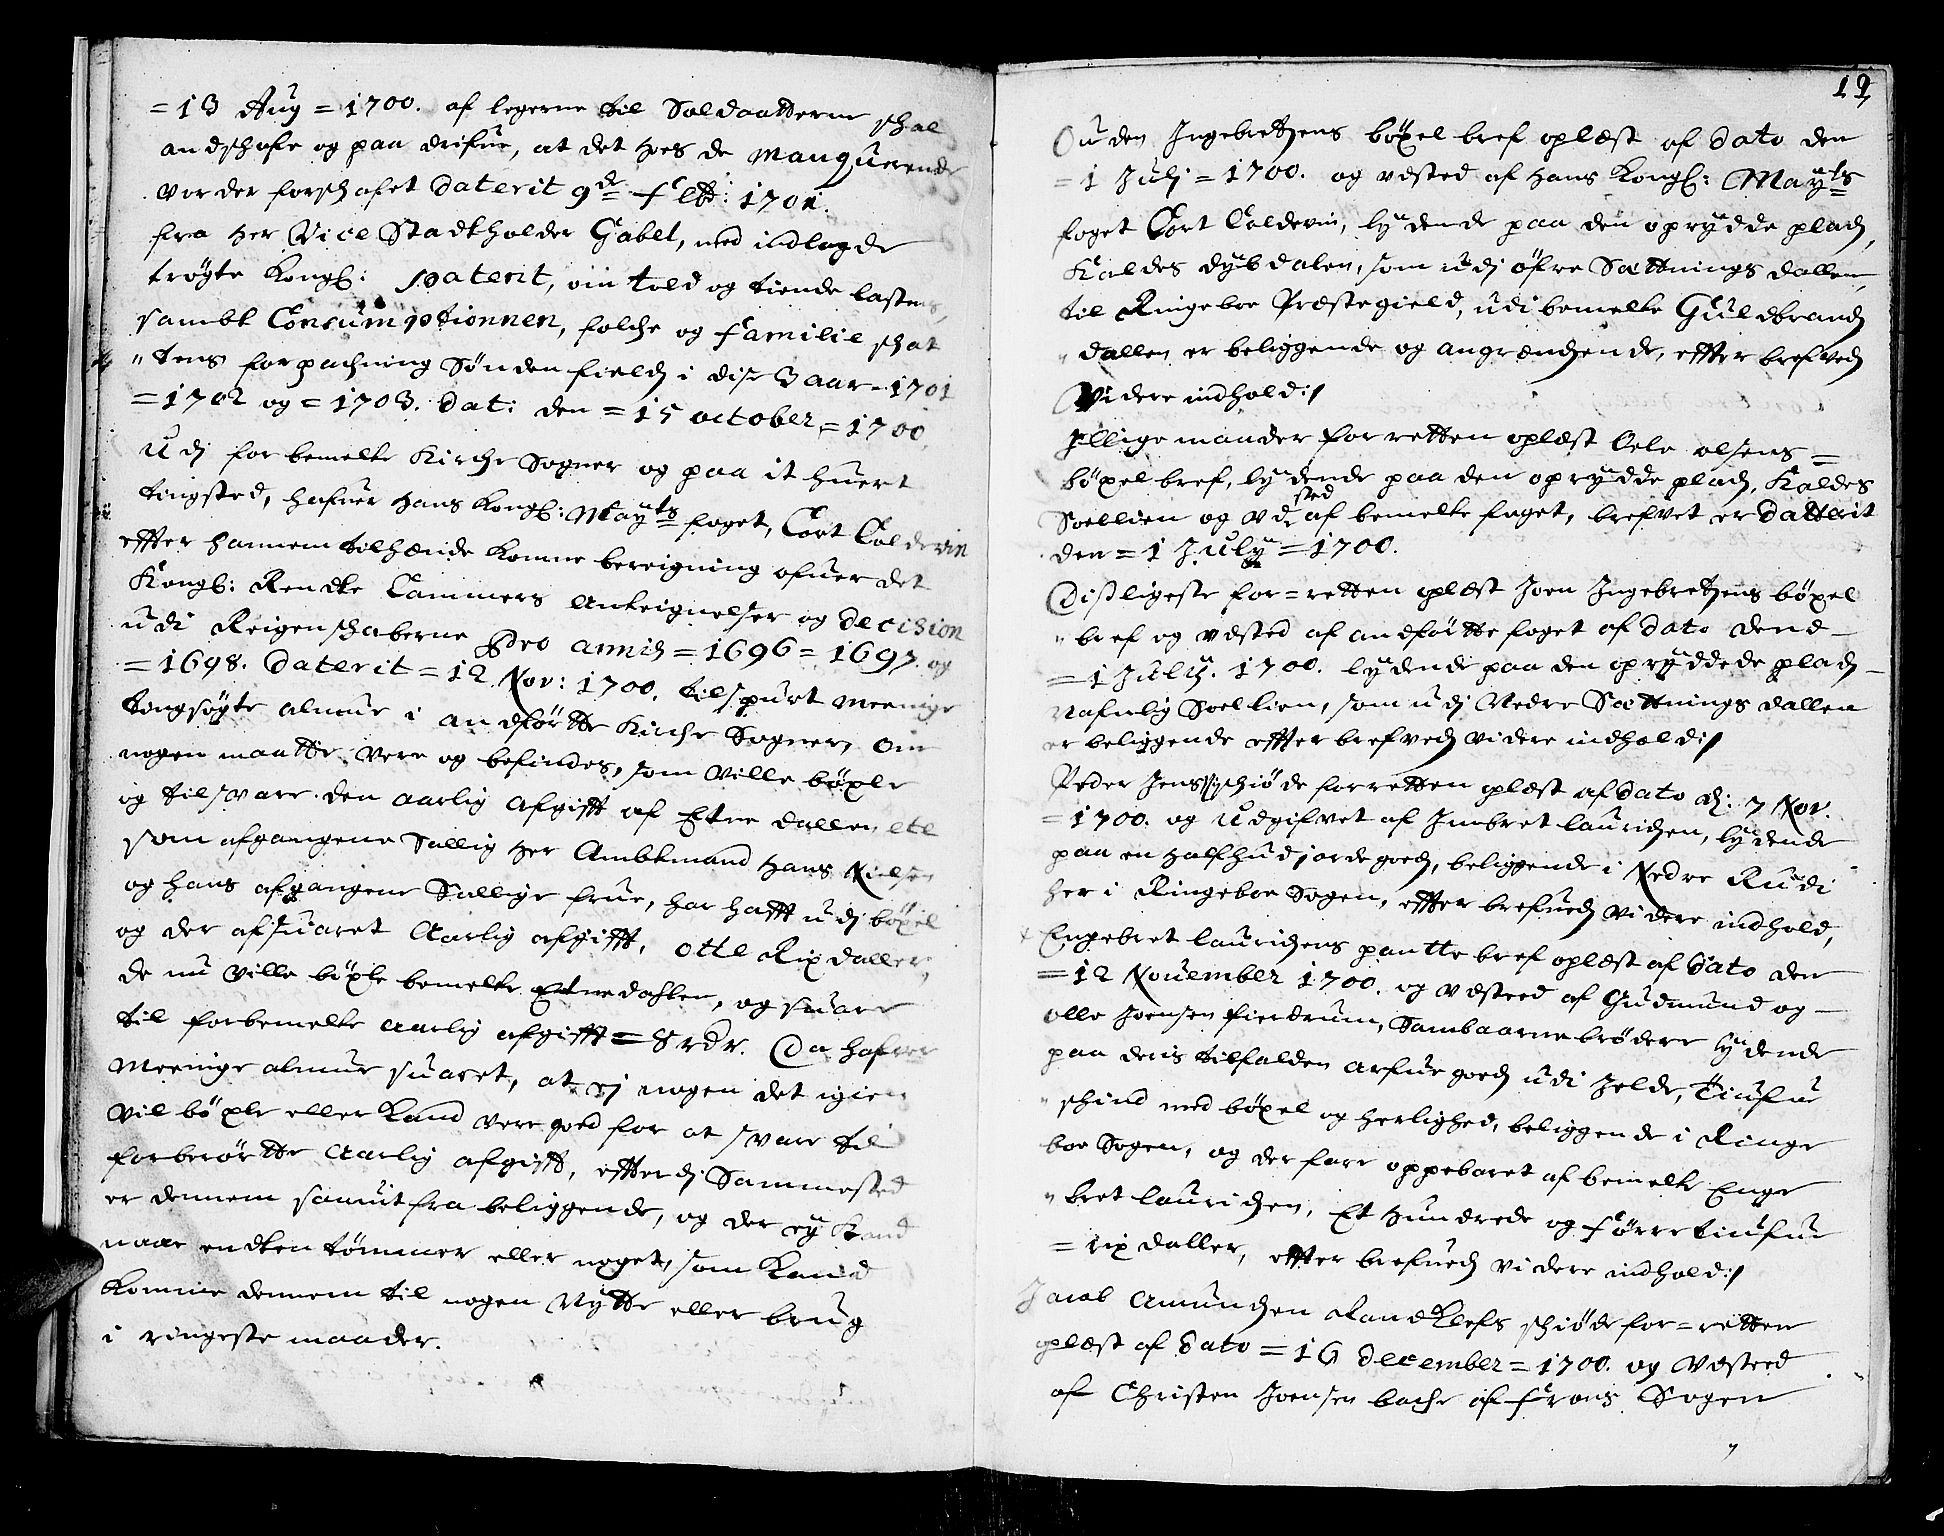 =13 Aug = 1700. af legerne til Soldaatterne schal
andschafe og paa drifue, at det hos de Manquerende
vorder forschafet Daterit 9de Feb: 1701.
fra Her Vice Stadtholder Gabel, med indlagde
trögte Kongl: Patent, om told og tiende lasten,
sambt Consumptionnen, folche og Familie schat
"tens forpachning Søndenfields i disse 3 aar = 1701
=1702 og =1703. dat: den =15 october = 1700.
Udj forbemelte Kirche Sogner og paa it huert
tingsted, hafuer Hans Kongl: Mayts foget, Cort Coldevin
effter hannem tilhænde komne beregning ofuer det
Kongl: Rendte Cammers Anteignelser og decision
udi Reigenschaberne Pro annis =1696 = 1697. og
=1698. Daterit =12 Nov: 1700. tilspurt meenige
tingsøgte almue i andførtte Kirche Sogner, om
nogen maatte vere og befindes, som ville böxle
og tilsvare den aarlig afgifft af Etne dallen, etc
som afgangene Sallig Her Ambtmand Hans Nielsen
og hans afgangene Sallige frue, har hafft udj böxel
og der afsuaret Aarlig afgifft, otte Rixdaller,
de nu ville böxle bemelte Etnedahlen, og suare
til forbemelte aarlig afgifft = 8 rdr. Da hafuer
Meenige almue suaret, at ej nogen det igien
vil böxle eller Kand vere goed for at svare til
forberørtte Aarlig afgifft, efftterdj Sammested
er dennem saa vit fra beliggende, og der ey Kand
naae endten tømmer eller noget, som Kand
komme dennem til nogen Nytte eller brug
i ringeste maader.
19
Ouden Ingebretzens böxel bref oplest af dato den
=1 Julj = 1700. og udsted af Hans Kongl: Mayts
foget Cort Coldevin, lydende paa den oprydde plads,
Kaldes dybdalen, som udj öfre Sættnings dallen,
til Ringeboe Præstegield, udi bemelte Guldbrands
"dallen er beliggende og angrændsende, effter brefveds
Videre indhold:/
Jllige maader for retten oplest Oele olsens =
böxel bref, lydende paa den oprydde plads, Kaldes
Soellien og udsted af bemelte foget, brefvet er datterit
den = 1 July = 1700.
Dißligeste for=retten oplest Joen Ingebretzens böxel
"bref og udsted af andførtte foget af dato dend
=1 July. 1700. lydende paa den opryddede plads
Nafnlig Soellien, som udj Nedre Sættnings dallen
er beliggende effter brefveds videre indhold:/
Peder Jens: schiöde for retten oplest af dato d: 7 Nov.
=1700. og udgifvet af Imbret lauridsen, lydende
paa en half hud jorde goeds, beliggende i Nedre Rudi
her i Ringeboe Sogen, effter brefueds videre indhold,
Engebret lauridsens pantte bref oplest af dato den
=12 November 1700. og udsteed af Gudmund og
olle Joensen fierdrum, Sambaarne brødere lydende
paa deris tilfalden arfue goeds udi Jelde,
"schind med böxel og herlighed, beliggende i Ringe
boe Sogen, og derfore oppebaaret af bemelte Enge
"bret lauridsen, Et Hundrede og Førretiufue
=rixdaller, effter brefueds videre indhold:/
Jacob Amundsen Randklefs schiöde for=retten
oplest af dato =16 december = 1700. og udsteed
af Christen Joensen bache af Frons Sogen